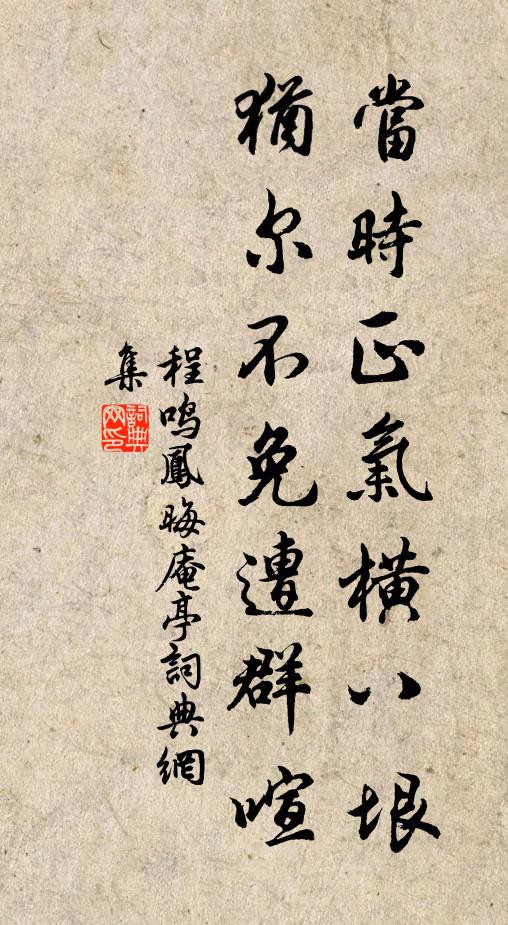 當時正氣橫八垠
猶尔不免遭群喧
程鳴鳳晦庵亭詞典網
集
詞典
网印